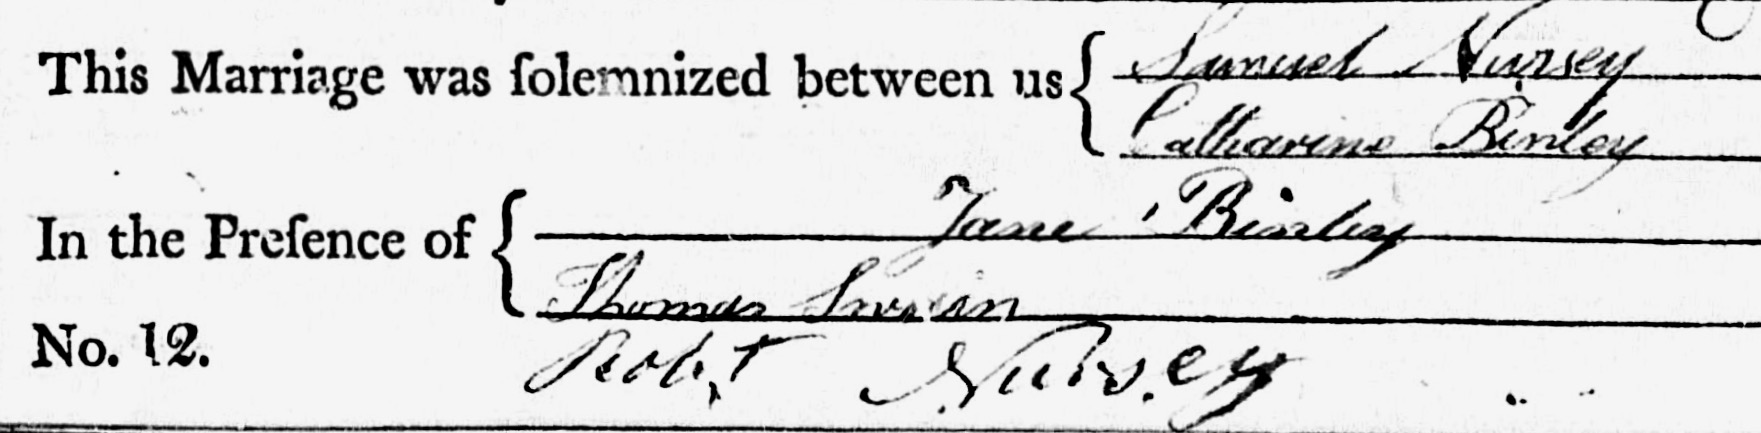 This Marriage was ſolemnized between us { Samuel Nursey
Catharine Binley
In the Preſence of { Jane Binley
Thomas
No. 12.
Robt Nursey